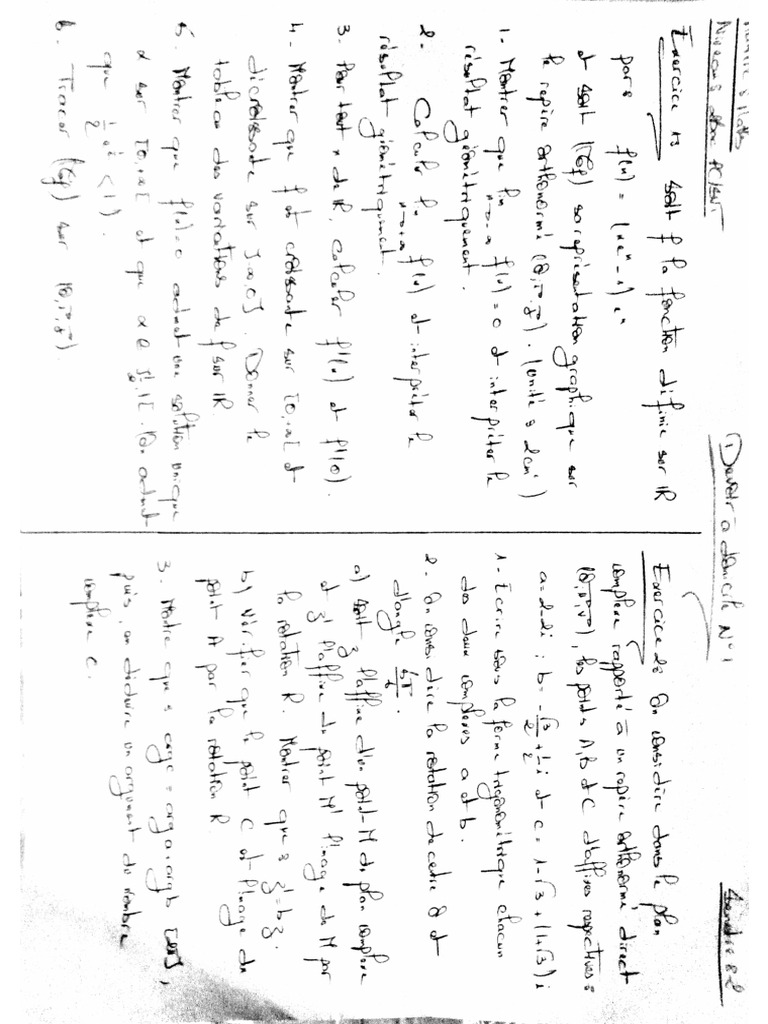 Matière : Maths
Niveau : 2bac PC/SVT
Devoir à domicile N°1
Semestre : 2
Exercice 1 : Soit f la fonction définie sur IR
par : f(x) = (xe^x - 1)e^x
et soit (Cf) sa représentation graphique sur
le repère orthonormé (O, i, j). (unité : 2cm)
1- Montrer que lim x→-∞ f(x) = 0 et interpréter le
résultat géométriquement.
2- Calculer lim x→+∞ f(x) et interpréter le
résultat géométriquement.
3. Pour tout x de IR, calculer f'(x) et f'(0).
4- Montrer que f est croissante sur [0,+∞[ et
décroissante sur ]-∞,0]. Donner le
tableau des variations de f sur IR
5. Montrer que f(x)=0 admet une solution unique
α sur [0,+∞[ et que α ∈ ]1/2,1[. (On admet
que 1/2 e^1/2 < 1).
6. Tracer (Cf) sur (O, i, j)
Exercice 2 : On considère dans le plan
complexe rapporté à un repère orthonormé direct
(O, u, v), les points A, B et C d'affixes respectives :
a = 2+2i ; b = -√3/2 + 1/2 i et c = 1-√3 + (1+√3)i
1- Ecrire sous la forme trigonométrique chacun
des deux complexes a et b.
2- On considère la rotation de centre O et
d'angle 5π/6.
a) Soit z l'affixe d'un point M du plan complexe
et z' l'affixe du point M' l'image de M par
la rotation R. Montrer que : z' = bz.
b) Vérifier que le point C est l'image du
point A par la rotation R.
3. Montre que : arg c = arg a + arg b [2π],
puis, en déduire un argument du nombre
complexe c.